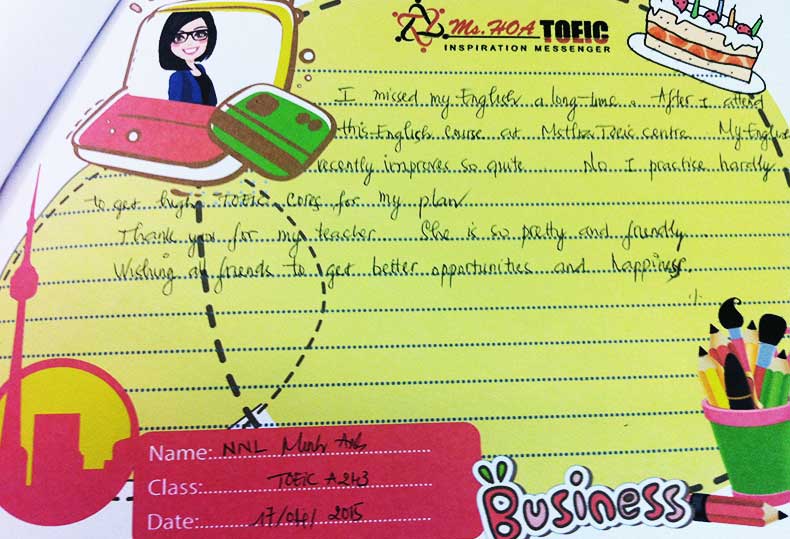 Ms. HOA TOEIC
INSPIRATION MESSENGER
I missed my English a long time. After I attend
this English course at MsHoa Toeic centre. My English
recently improves so quite. No I practise hardly
to get high TOEIC cores for my plan
Thank you for my teacher. She is so pretty and friendly.
Wishing all friends to get better opportunities and happiness.
Name: NNL Minh Anh
Class: TOEIC A243
Date: 17/04/2015
Business